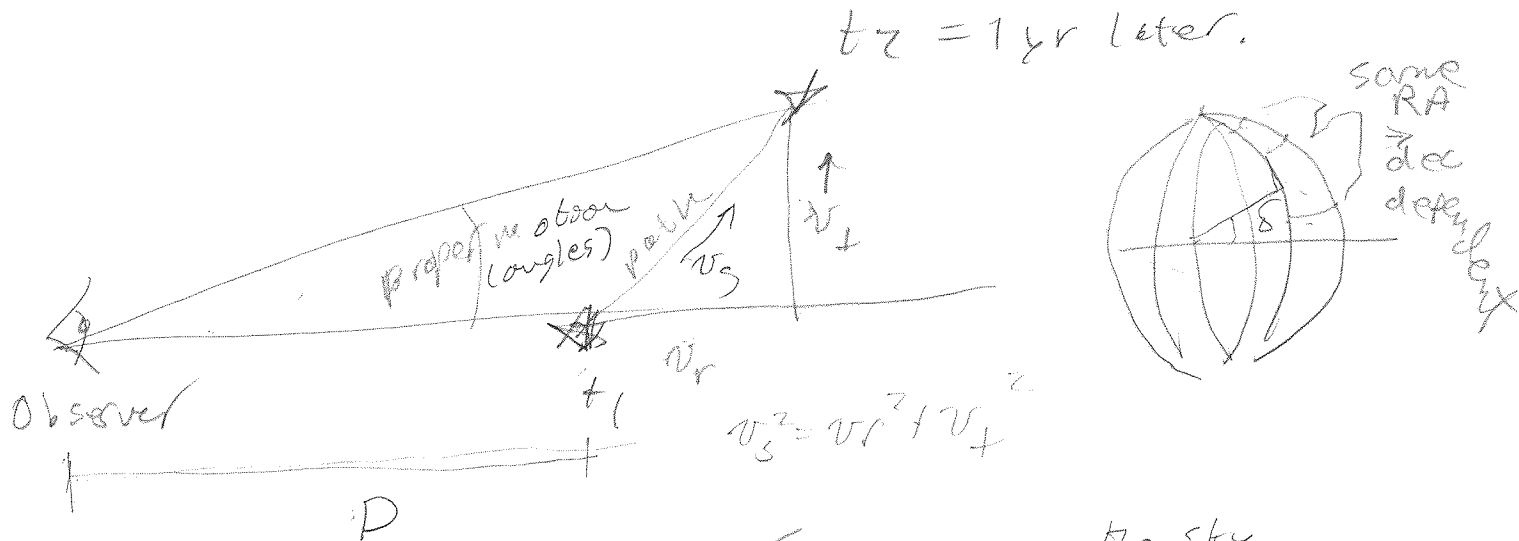 t2 = 1 yr later.
same
RA
dec
dependency
δ
proper motion
(angles)
path
vs
vt
vr
t1
Observer
vs² = vr² + vt²
D
the sky